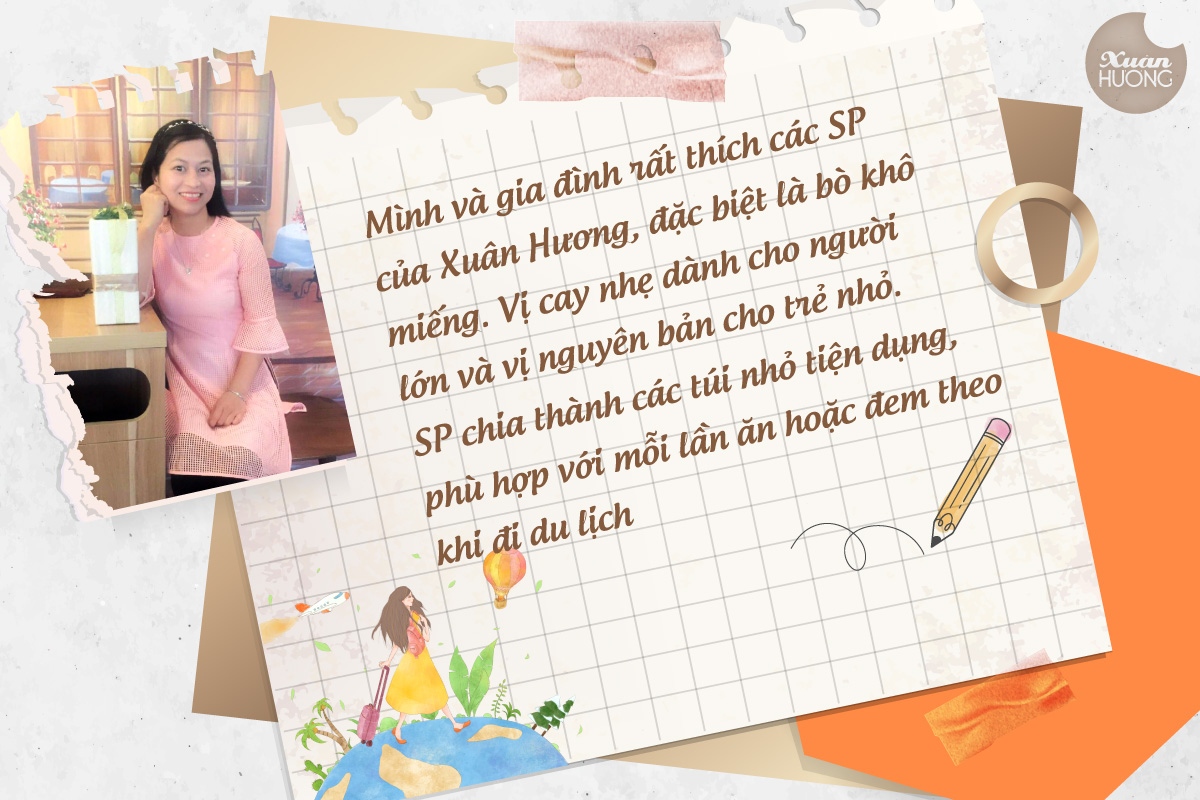 Xuân
HUONG
Mình và gia đình rất thích các SP
của Xuân Hương, đặc biệt là bò khô
miếng. Vị cay nhẹ dành cho người
lớn và vị nguyên bản cho trẻ nhỏ.
SP chia thành các túi nhỏ tiện dụng,
phù hợp với mỗi lần ăn hoặc đem theo
khi đi du lịch